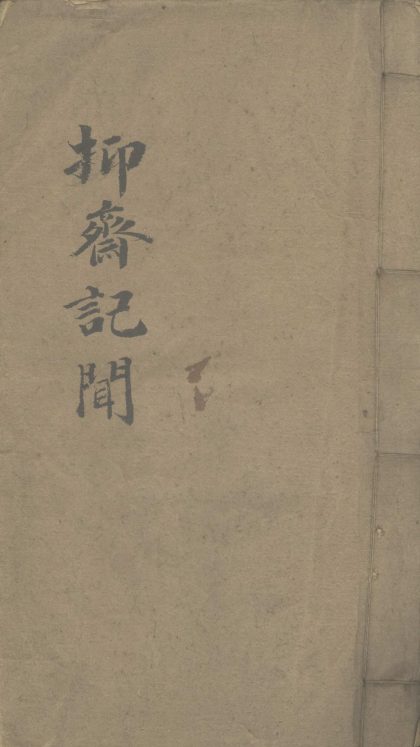 抑齋記聞